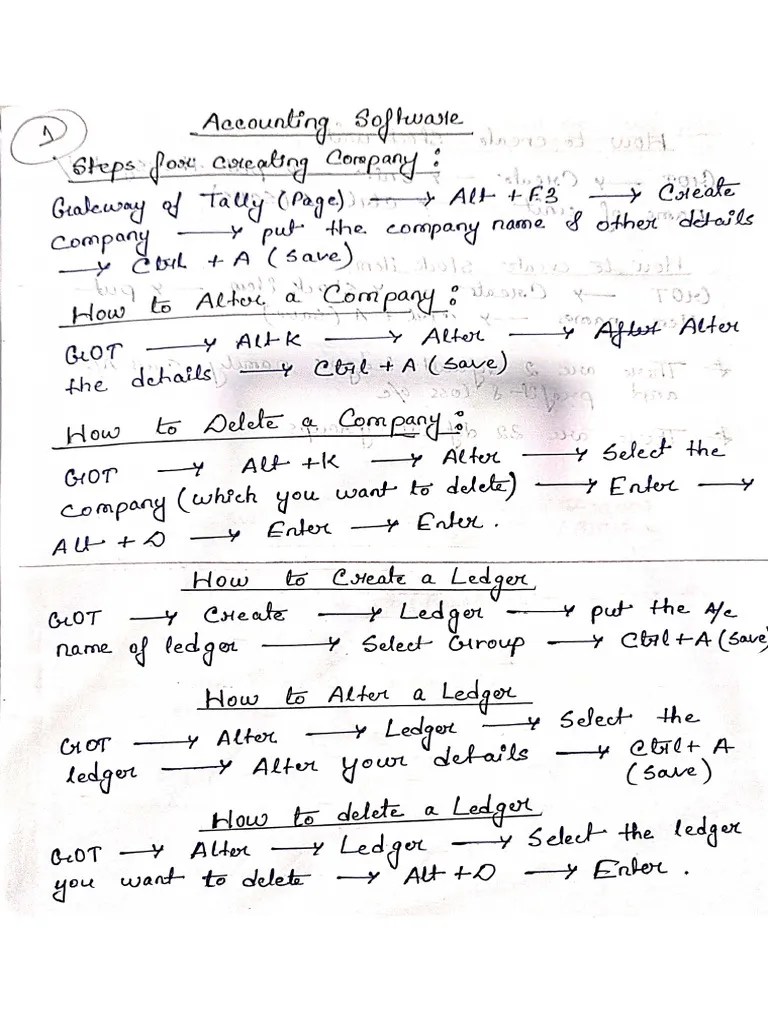 1
Accounting Software
Steps for creating Company :
Gateway of Tally (Page) → Alt + F3 → Create
Company → put the company name & other details
→ Ctrl + A (Save)
How to Alter a Company :
GOT → Alt K → Alter → After Alter
the details → Ctrl + A (Save)
How to Delete a Company :
GOT → Alt + K → Alter → Select the
Company (which you want to delete) → Enter →
Alt + D → Enter → Enter .
How to Create a Ledger
GOT → Create → Ledger → put the A/c
name of ledger → Select Group → Ctrl + A (Save)
How to Alter a Ledger
GOT → Alter → Ledger → Select the
ledger → Alter your details → Ctrl + A
(Save)
How to delete a Ledger
GOT → Alter → Ledger → Select the ledger
you want to delete → Alt + D → Enter .